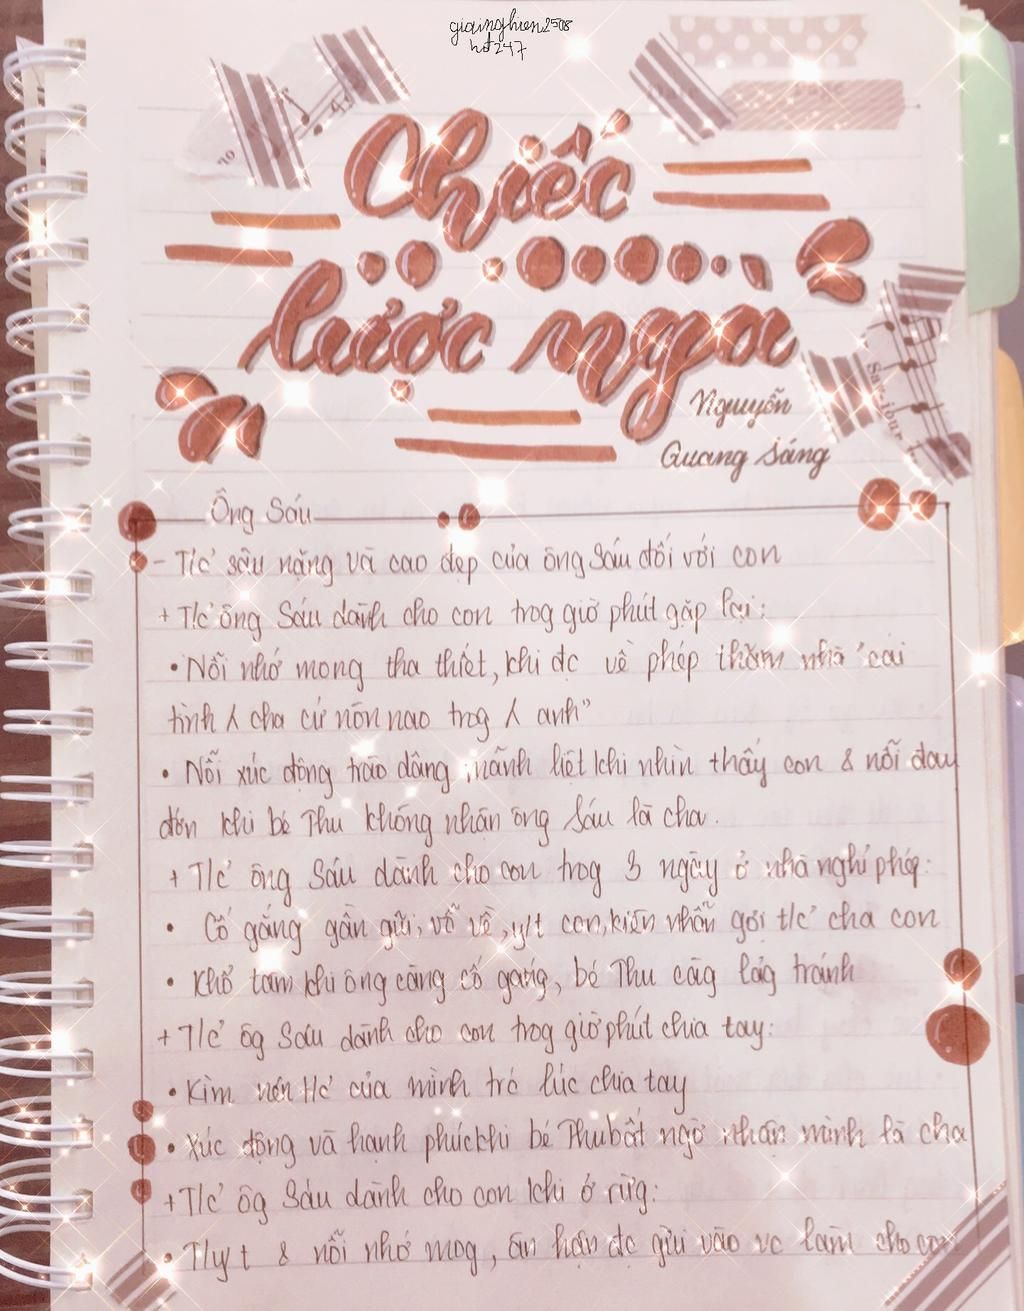 giainghien2508
hđ247
Chiếc
lược ngà
Nguyễn
Quang Sáng
Ông Sáu
- T/c' sâu nặng và cao đẹp của ông Sáu đối với con
+ T/c' ông Sáu dành cho con trog giờ phút gặp lại:
• Nỗi nhớ mong tha thiết, khi đc về phép thăm nhà "cái
tình λ cha cứ nôn nao trog λ anh"
• Nỗi xúc động trào dâng, mãnh liệt khi nhìn thấy con & nỗi đau
đớn khi bé Thu không nhận ông Sáu là cha.
+ T/c' ông Sáu dành cho con trog 3 ngày ở nhà nghỉ phép:
• Cố gắng gần gũi, vỗ về, y/t con, kiên nhẫn gợi t/c' cha con
• Khổ tâm khi ông càng cố gắng, bé Thu càg lảg tránh
+ T/c' ôg Sáu dành cho con trog giờ phút chia tay:
• Kìm nén t/c' của mình trc lúc chia tay
• Xúc động và hạnh phúc khi bé Thu bất ngờ nhận mình là cha
+ T/c' ôg Sáu dành cho con khi ở rừg:
• T/y t & nỗi nhớ mog, ân hận đc gửi vào vc làm cho con